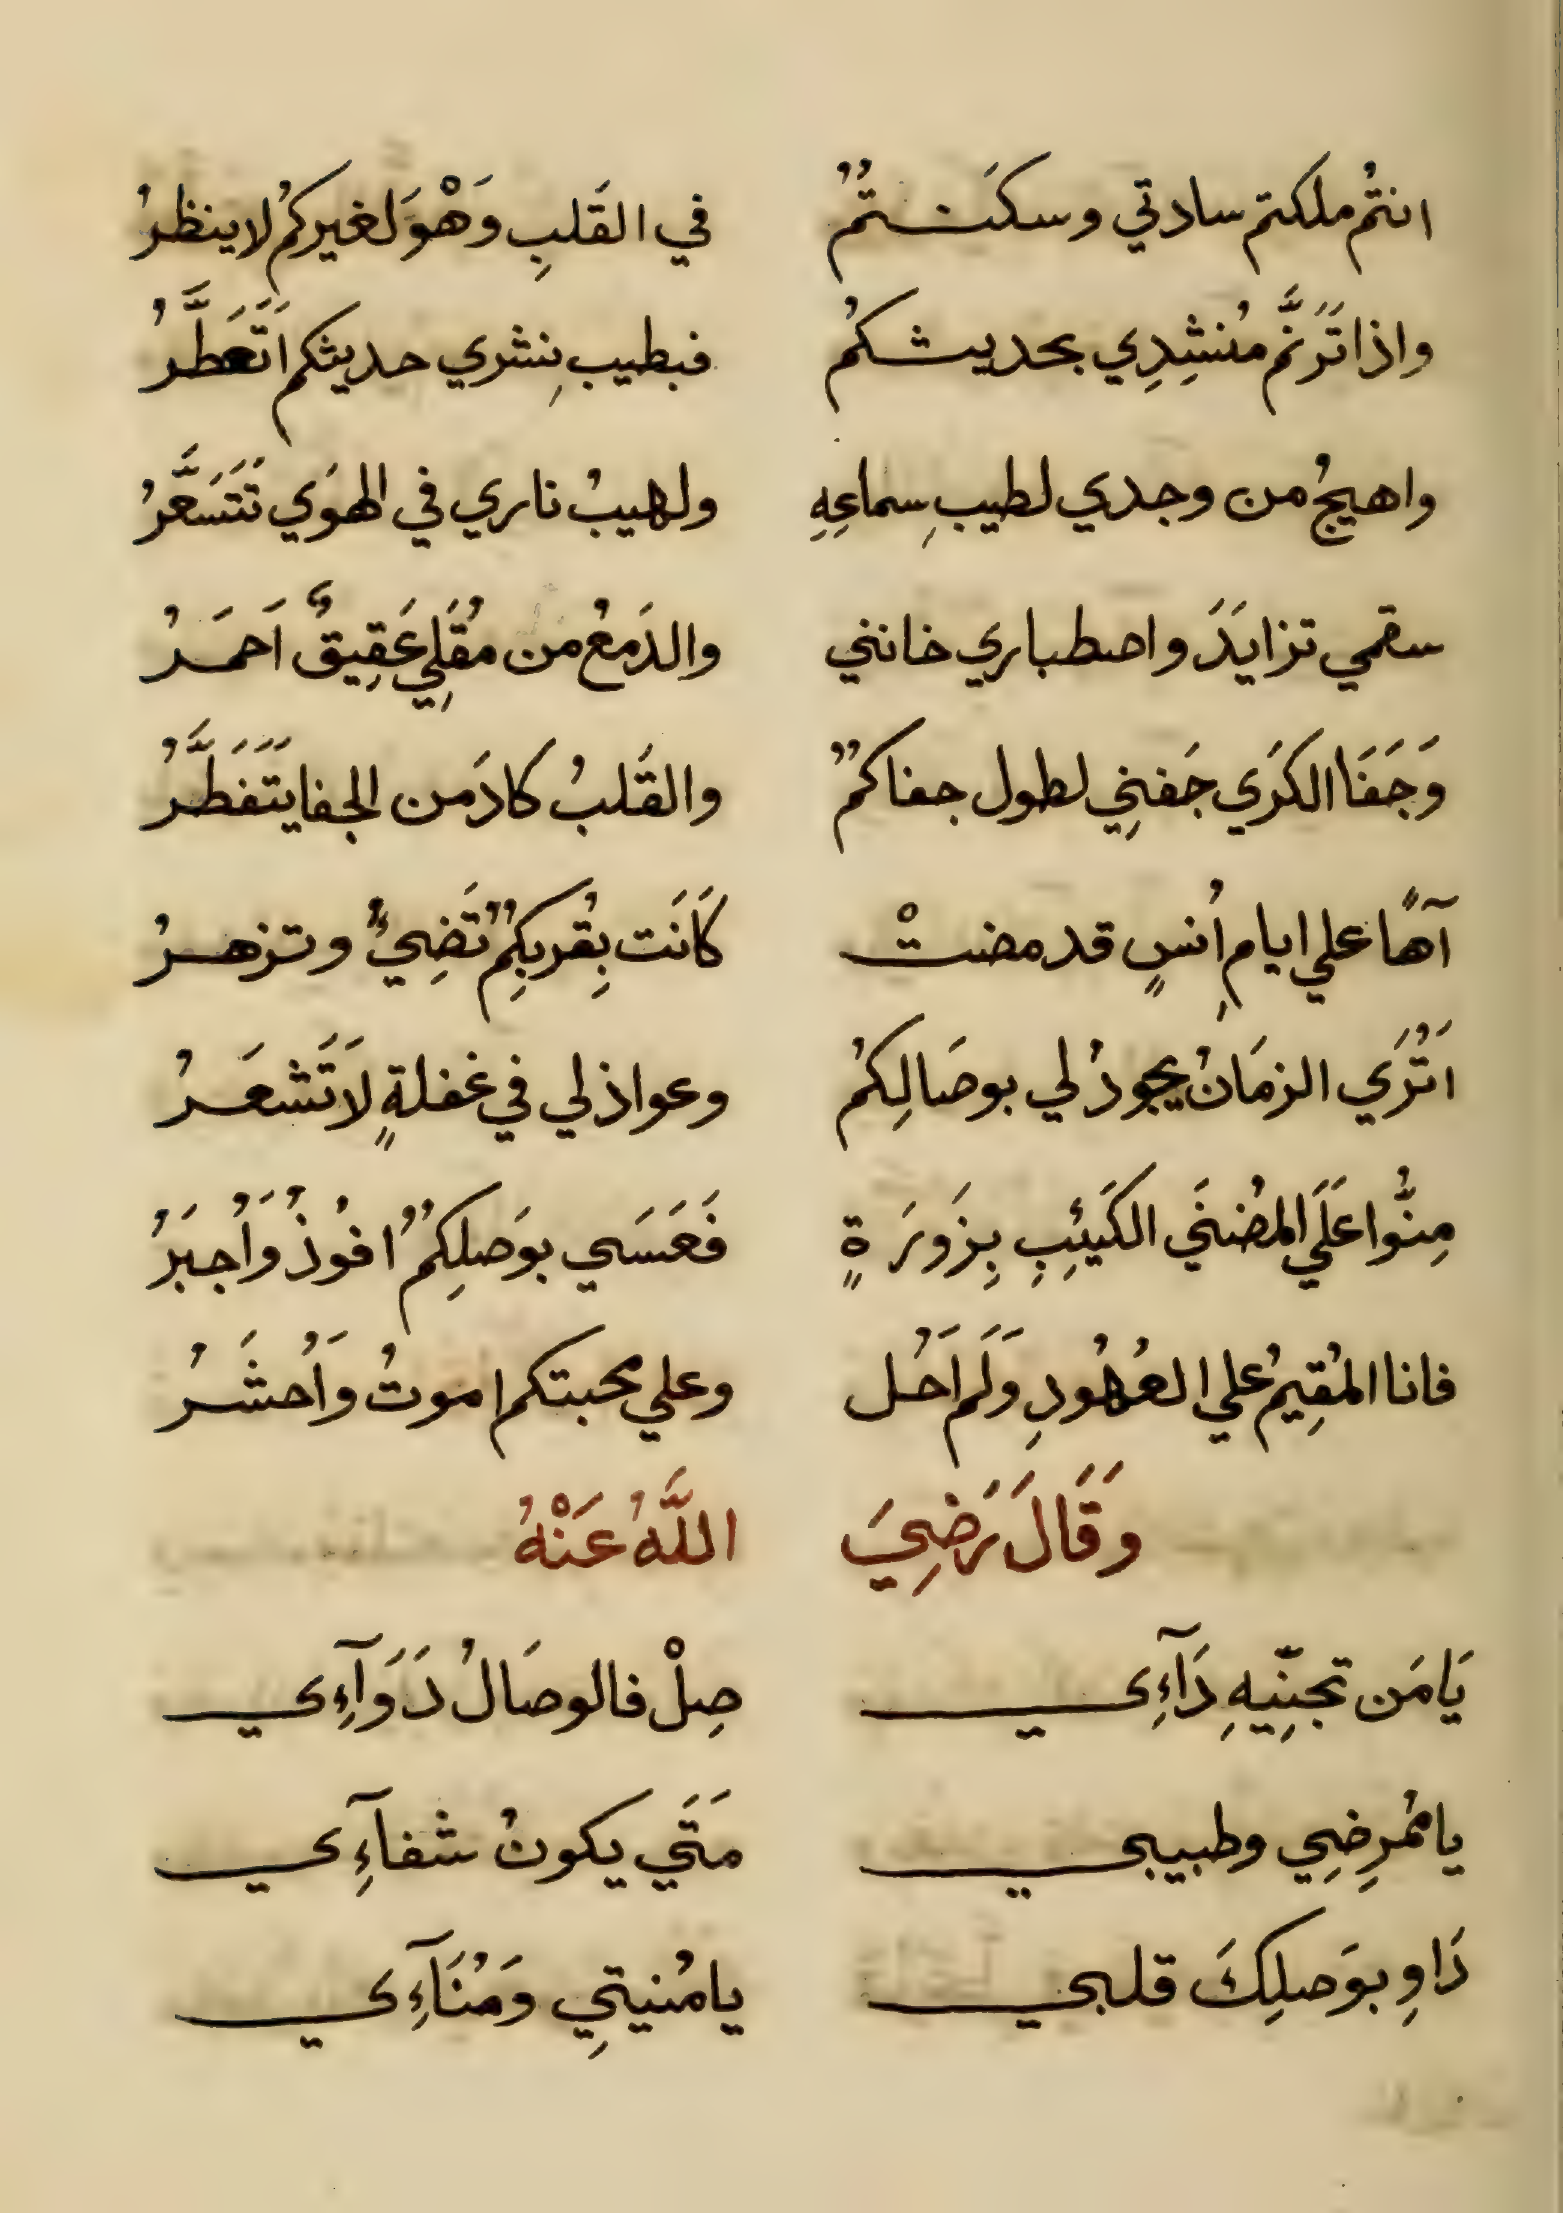 انتُم ملكتم سادتي وسكَنتُمُ في القَلبِ وَهْوَ لغيركمُ لا ينظرُ
واذا تَرَنَّم مُنشِدِي بحديثكُم فبطيبِ نشري حديثكم اَتَعَطَّرُ
واهيجُ من وجدي لطيبِ سماعِهِ ولهيبُ ناري في الهوَي تَتَسَعَّرُ
سقمي تزايَدَ واصطباري خانني والدَمعُ من مُقَلِي عَقِيقٌ اَحمَرُ
وَجَفَا الكَرَي جَفنِي لطول جفاكمُ والقَلبُ كادَ من الجفا يَتَفَطَّرُ
آهًا علي ايامِ اُنسٍ قد مضتْ كَانَت بِقُربِكِمُ تَضِيءُ وتزهرُ
اَتُرَي الزمَانُ يجودُ لي بوصَالِكُم وعواذلي في غفلةٍ لَا تَشعَرُ
مِنُّوا عَلَي المُضنَي الكَئِيبِ بِزَورَةٍ فَعَسَي بوَصلِكُمُ افُوذُ وَاُجبَرُ
فانا المُقِيمُ علي العُهُودِ وَلَم اَحُل وعلي محبتكم اموتُ وَاُحشَرُ
وَقَالَ رَضِيَ اللَّهُ عَنْهُ
يَا مَن تجنِّيهِ دَآءِي صِلْ فالوصَالُ دَوَآءِي
يا مُمرِضِي وطبيبي مَتَي يكونُ شفآءِي
دَاوِ بوَصلِكَ قلبي يا مُنيتِي وَمُنَآءِي